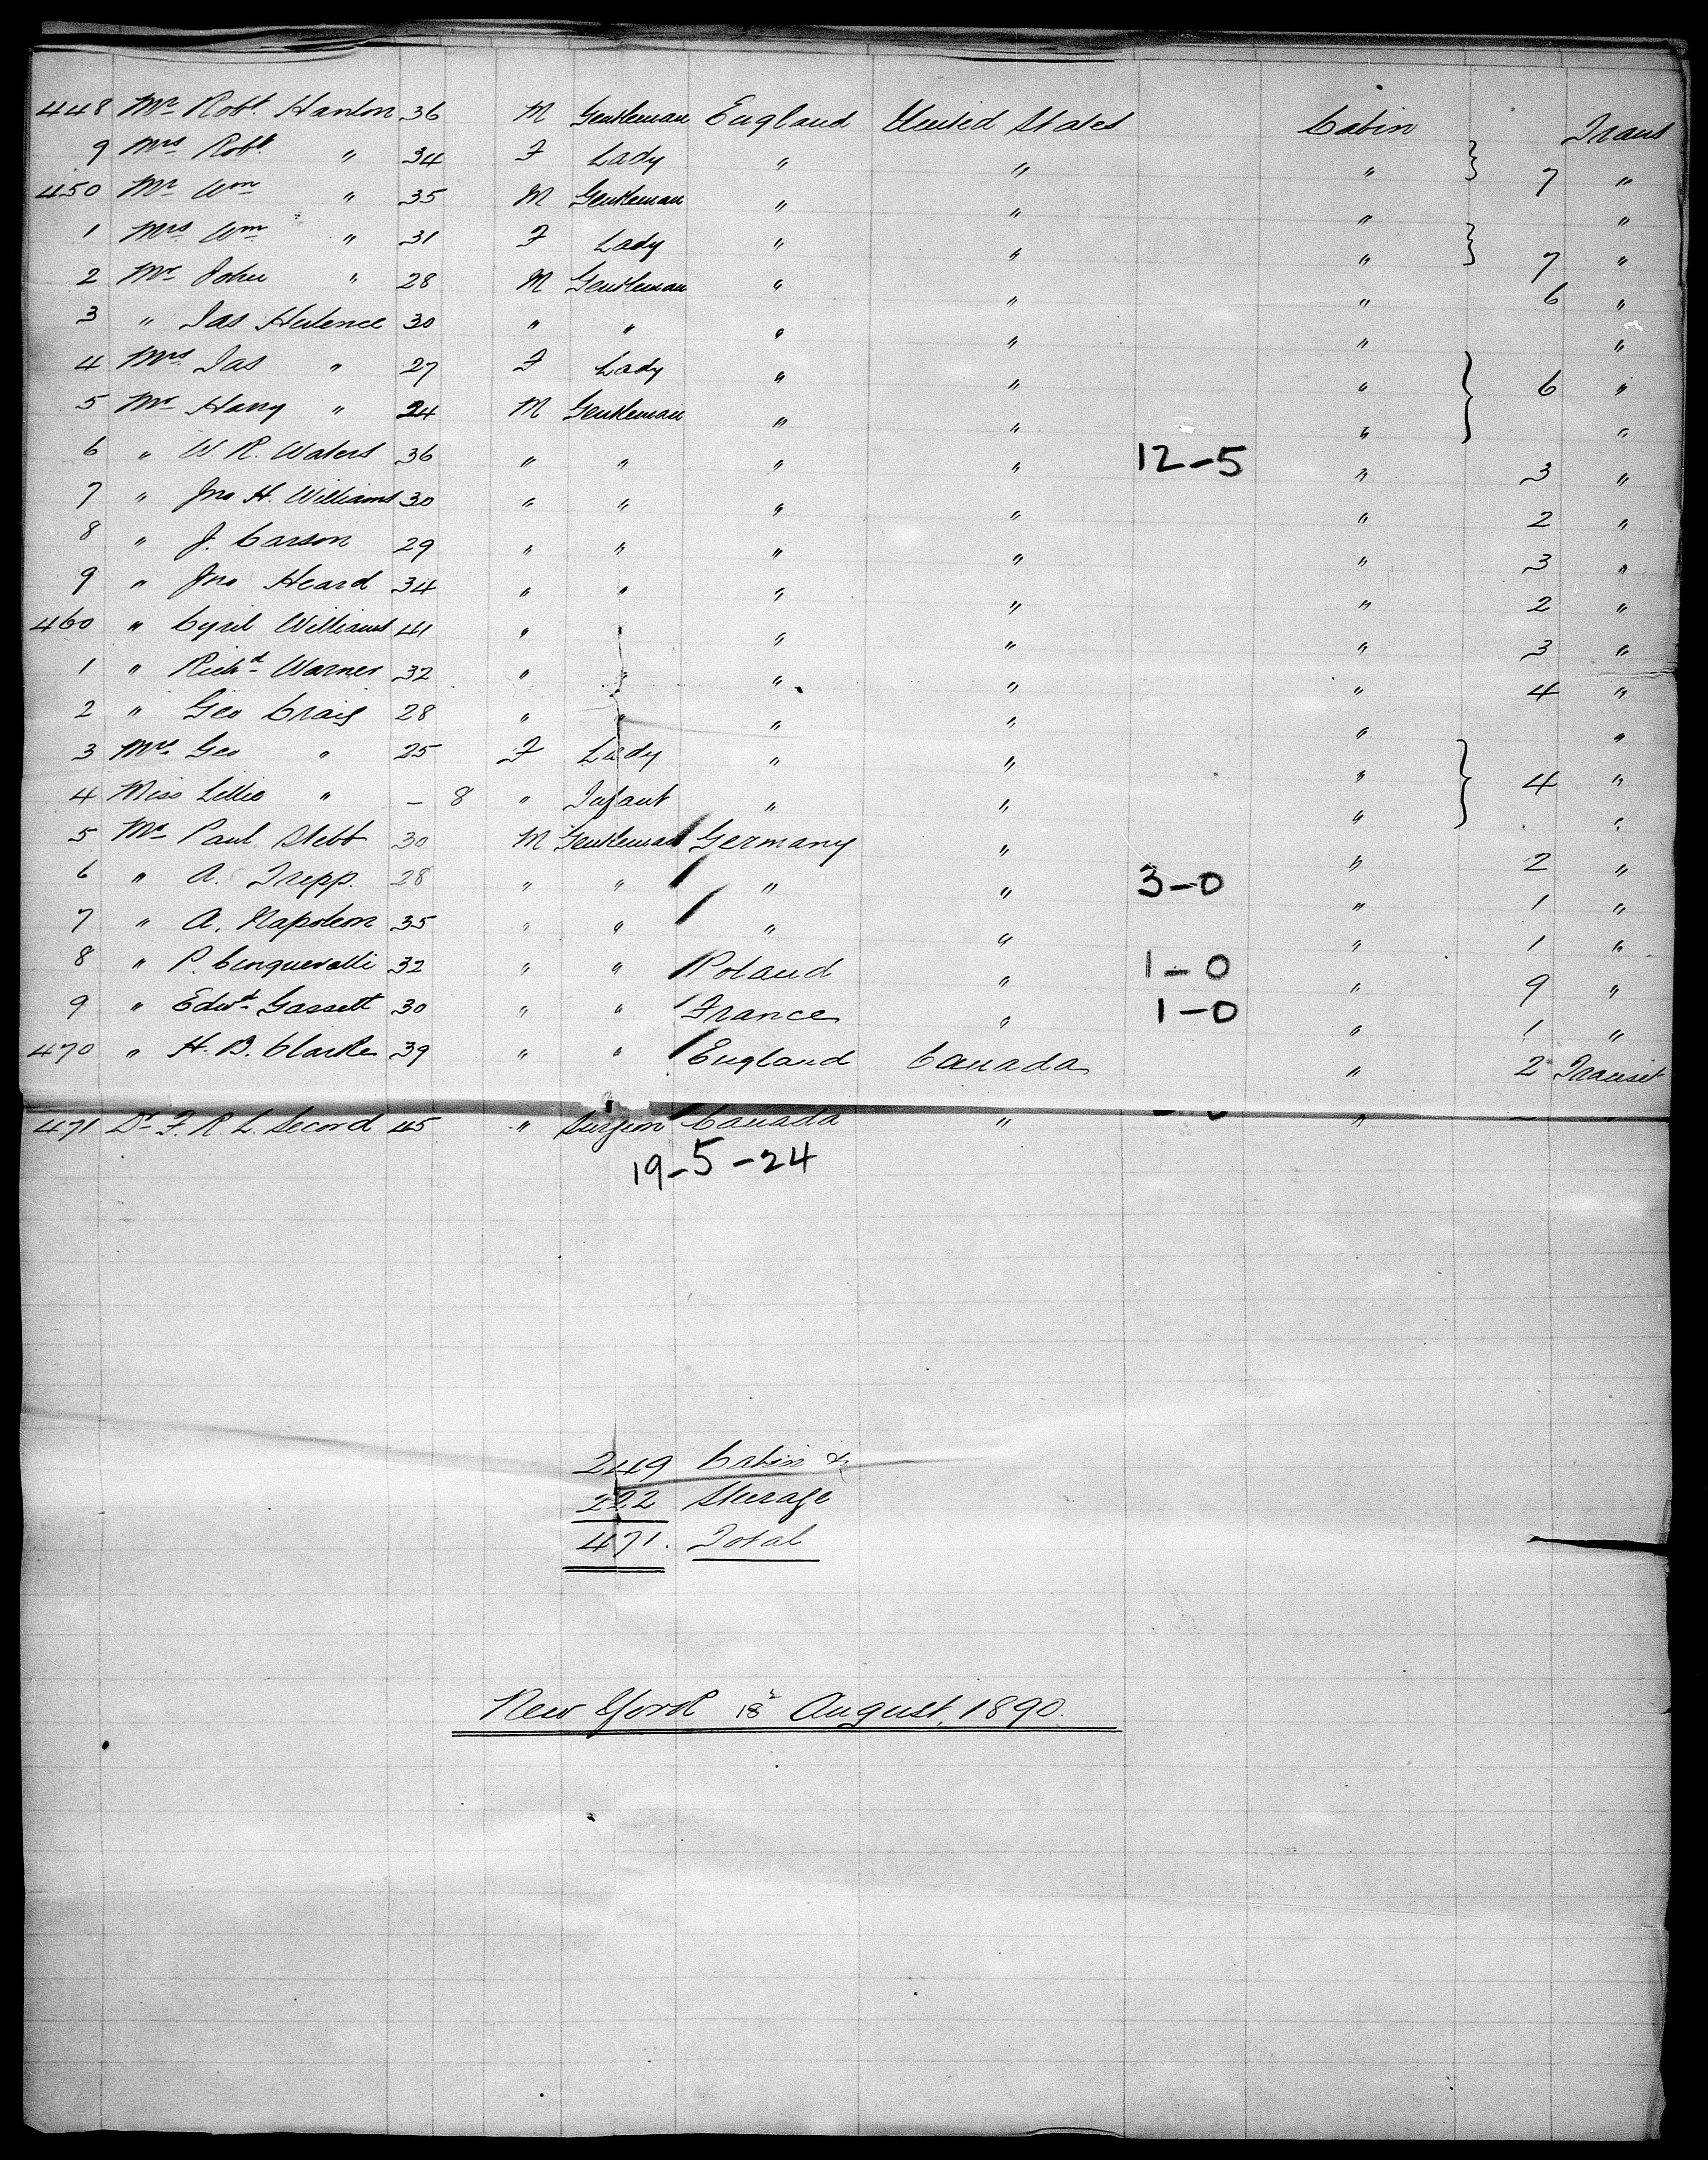 448 Mr Robt. Hanlon 36 M Gentleman England United States Cabin Trans
9 Mrs Robt. " 34 F Lady " " " } 7 "
450 Mr Wm " 35 M Gentleman " " " "
1 Mrs Wm " 31 F Lady " " " } 7 "
2 Mr John " 28 M Gentleman " " " 6 "
3 " Jas 30 " " " " " "
4 Mrs Jas " 27 F Lady " " " } 6 "
5 Mr Harry " 24 M Gentleman " " " "
6 " W. R. Waters 36 " " " " 12-5 " 3 "
7 " Jno H. Williams 30 " " " " " 2 "
8 " J. Carson 29 " " " " " 3 "
9 " Jno Heard 34 " " " " " 2 "
460 " Cyril Williams 41 " " " " " 3 "
1 " Richd Warner 32 " " " " " 4 "
2 " Geo Craig 28 " " " " " "
3 Mrs Geo " 25 F Lady " " " } 4 "
4 Miss Lillie " - 8 " Infant " " " "
5 Mr Paul Stebb 30 M Gentleman Germany " " 2 "
6 " A. Trepp. 28 " " " " 3-0 " 1 "
7 " A. Napoleon 35 " " " " " 1 "
8 " P. Cinquevalli 32 " " Poland " 1-0 " 9 "
9 " Edwd Gassett 30 " " France " 1-0 " 1 "
470 " H. B. Clarke 39 " " England Canada " 2 Transit
471 Dr F. R. L. Secord 45 " Surgeon Canada " "
19-5-24
249 Cabin &
222 Steerage
471. Total
New York 18th August, 1890.